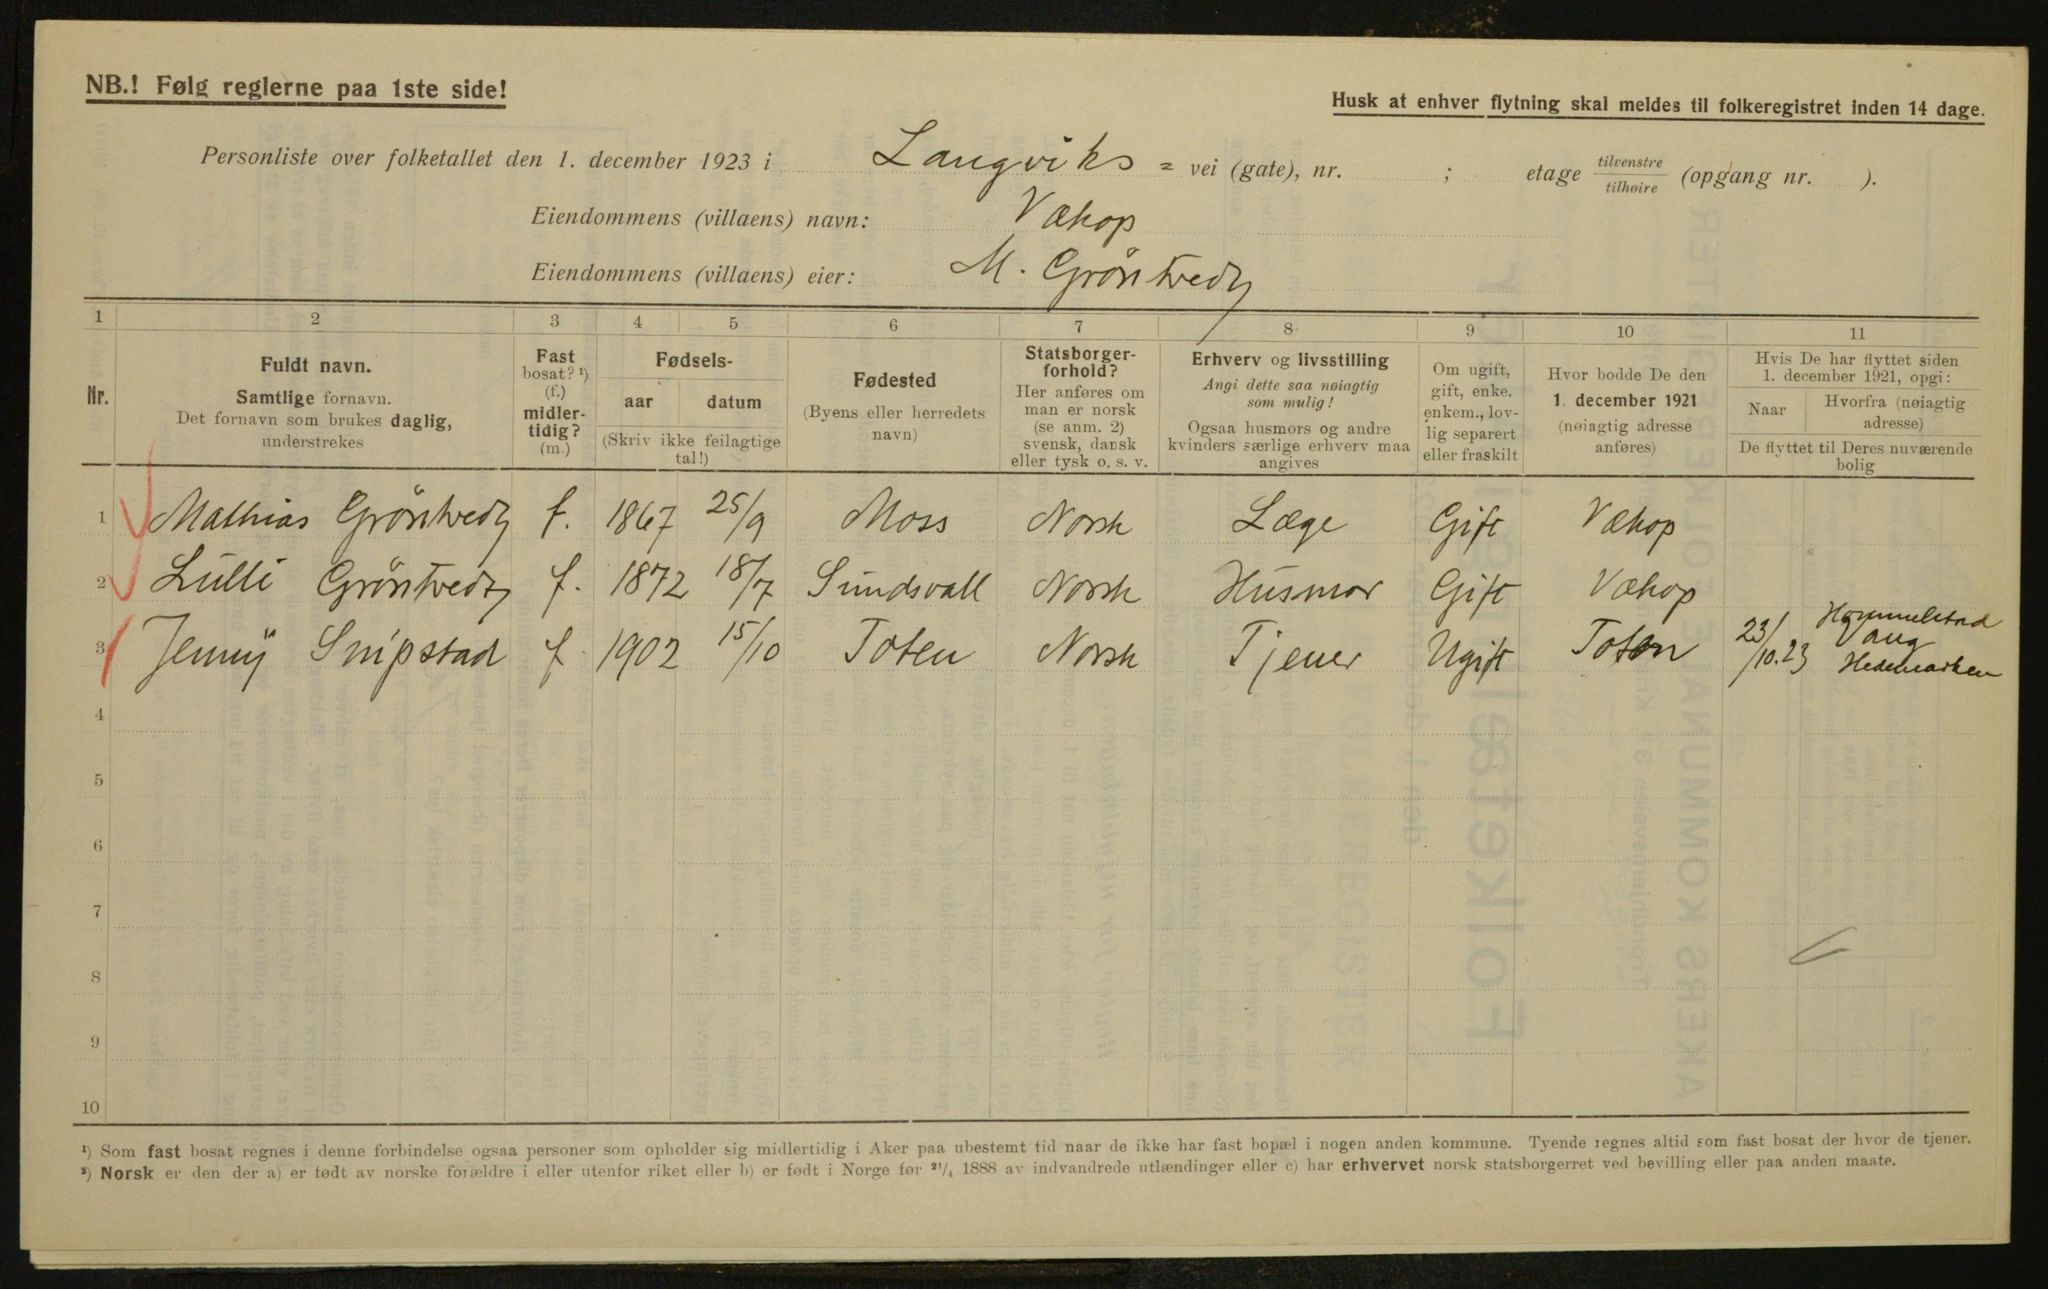 NB.! Følg reglerne paa 1ste side!
Husk at enhver flytning skal meldes til folkeregistret inden 14 dage.
Personliste over folketallet den 1. december 1923 i Langviks = vei (gate), nr. ; etage tilvenstre / tilhøire (opgang nr. ).
Eiendommens (villaens) navn: Vækop
Eiendommens (villaens) eier: M. Gröntvedt
1 2 3 4 5 6 7 8 9 10 11
Nr.
Fuldt navn.
Samtlige fornavn.
Det fornavn som brukes daglig,
understrekes
Fast
bosat? ¹)
(f.)
midler-
tidig?
(m.)
Fødsels-
aar datum
(Skriv ikke feilagtige
tal!)
Fødested
(Byens eller herredets
navn)
Statsborger-
forhold?
Her anføres om
man er norsk
(se anm. 2)
svensk, dansk
eller tysk o. s. v.
Erhverv og livsstilling
Angi dette saa nøiagtig
som mulig!
Ogsaa husmors og andre
kvinders særlige erhverv maa
angives
Om ugift,
gift, enke.
enkem., lov-
lig separert
eller fraskilt
Hvor bodde De den
1. december 1921
(nøiagtig adresse
anføres)
Hvis De har flyttet siden
1. december 1921, opgi:
Naar
Hvorfra (nøiagtig
adresse)
De flyttet til Deres nuværende
bolig
1 Mathias Gröntvedt f. 1867 25/9 Moss Norsk Læge Gift Vækop
2 Lulli Gröntvedt f. 1872 18/7 Sundsvall Norsk Husmor Gift Vækop
3 Jenny Snipstad f 1902 15/10 Toten Norsk Tjener Ugift Toten 23/10.23 Hommelstad
Vang
Hedemarken
4
5
6
7
8
9
10
¹) Som fast bosat regnes i denne forbindelse ogsaa personer som opholder sig midlertidig i Aker paa ubestemt tid naar de ikke har fast bopæl i nogen anden kommune. Tyende regnes altid som fast bosat der hvor de tjener.
²) Norsk er den der a) er født av norske forældre i eller utenfor riket eller b) er født i Norge før ²¹/₄ 1888 av indvandrede utlændinger eller c) har erhvervet norsk statsborgerret ved bevilling eller paa anden maate.